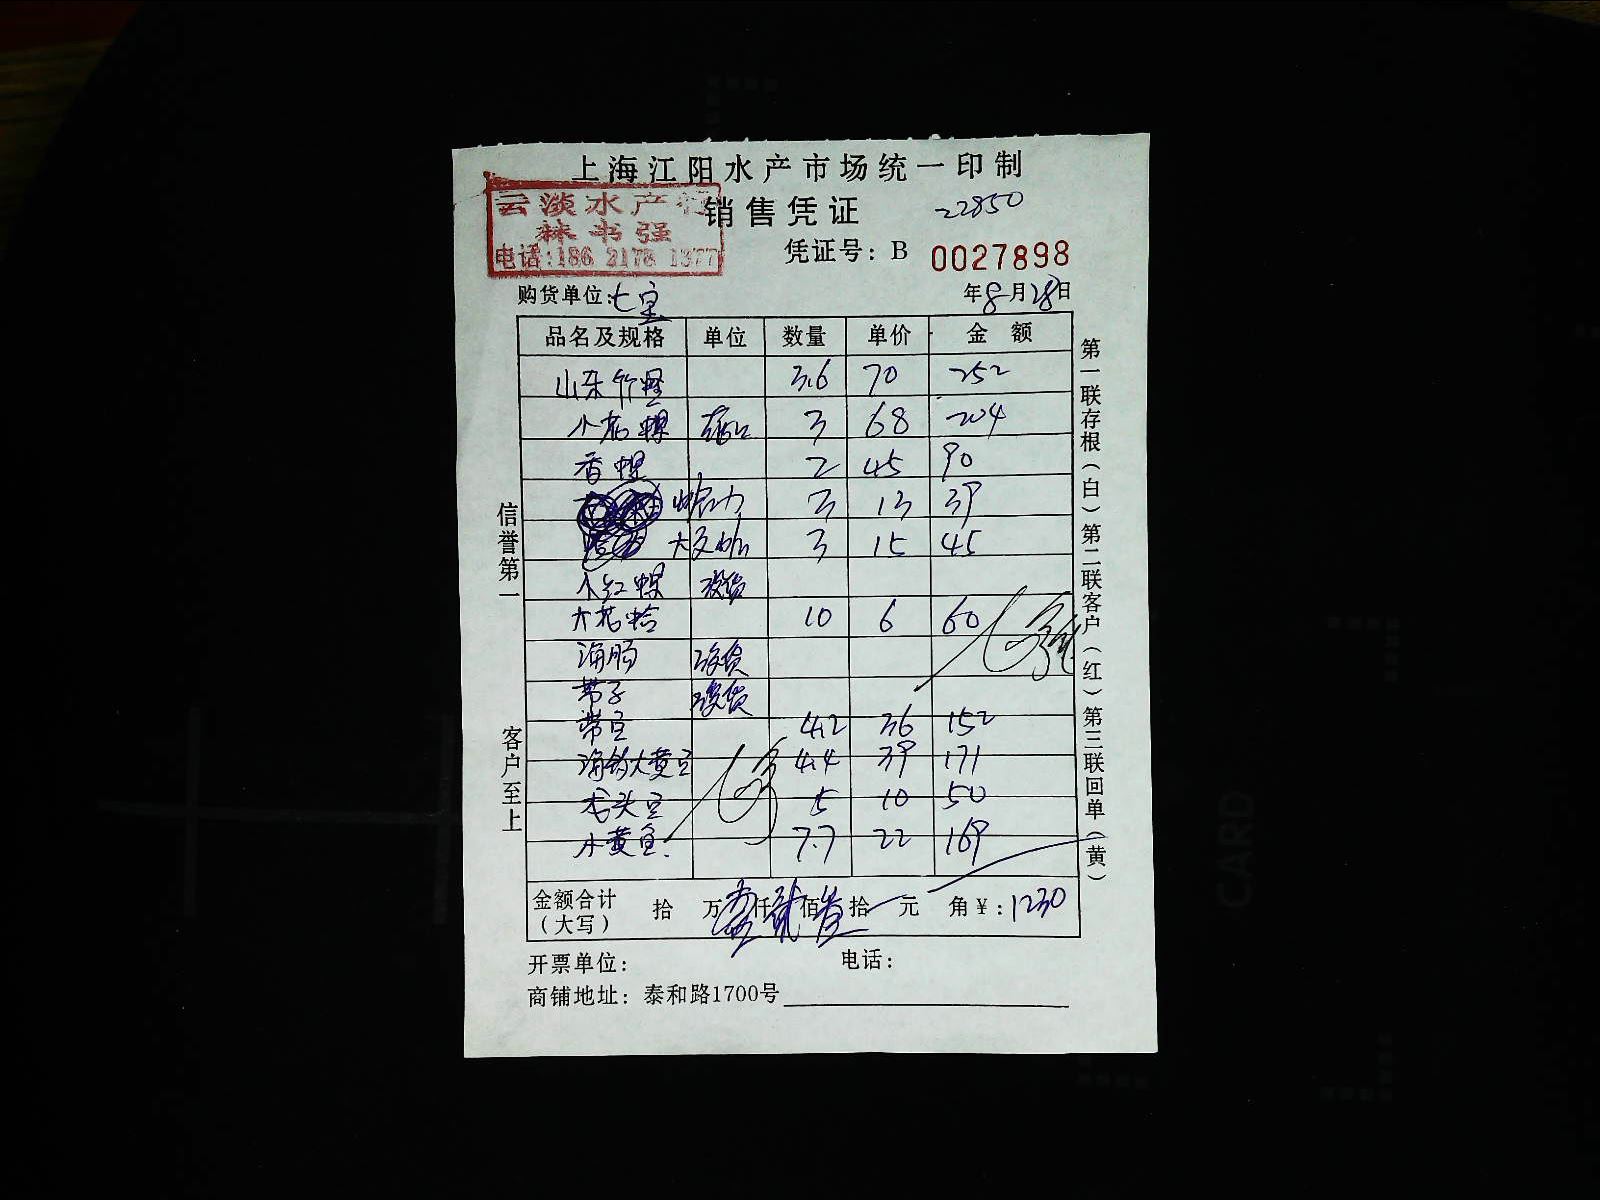 上海江阳水产市场统一印制
云淡水产行
林书强
电话:186 2178 1377
销售凭证
22850
凭证号: B 0027898
购货单位:七宝
年8月28日
品名及规格 单位 数量 单价 金额
山东竹蛏 3.6 70 252
小花螺 3 68 204
香螺 2 45 90
3 13 39
3 15 45
小红螺 没货
大花蛤 10 6 60
海肠 没货
带子 没货
带鱼 4.2 36 152
海钓大黄鱼 4.4 39 171
龙头鱼 5 10 50
小黄鱼 7.7 22 169
金额合计(大写) 拾 万 仟 佰 拾 元 角 ¥: 1230
开票单位: 电话:
商铺地址: 泰和路1700号
信誉第一 客户至上
第一联存根(白) 第二联客户(红) 第三联回单(黄)